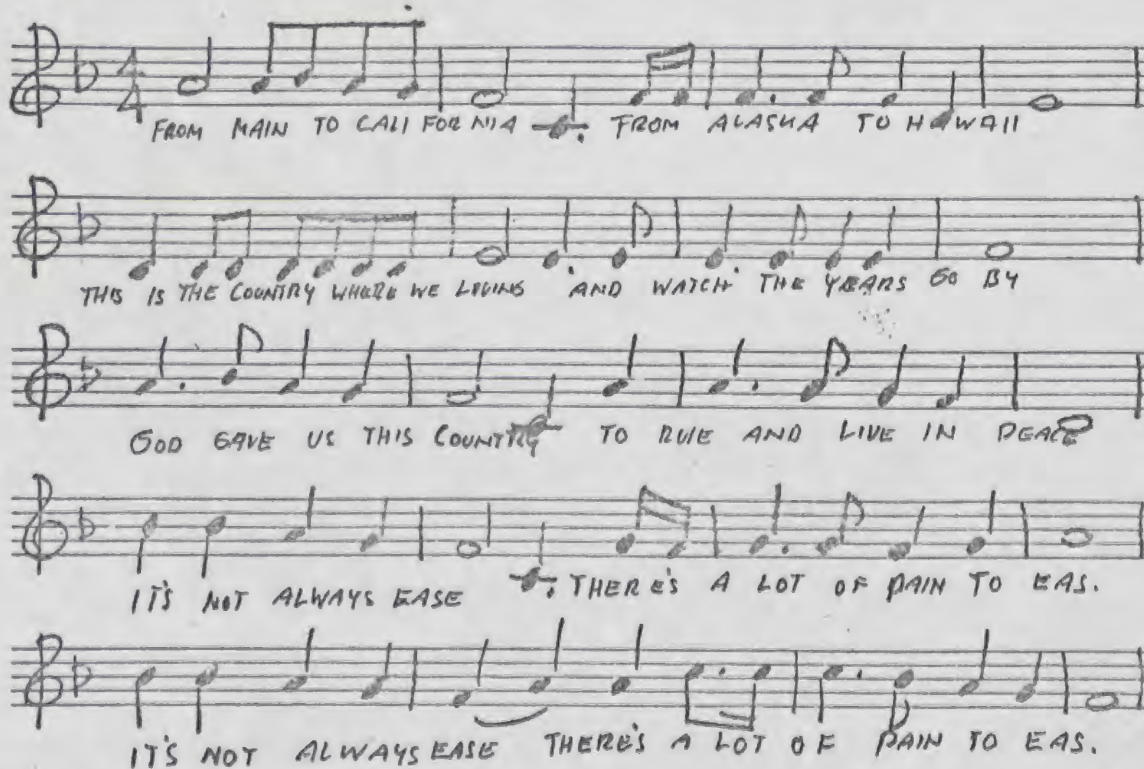 4
4
FROM MAIN TO CALI FOR NIA FROM ALASKA TO HAWAII
THIS IS THE COUNTRY WHERE WE LIVING AND WATCH THE YEARS GO BY
GOD GAVE US THIS COUNTRY TO RULE AND LIVE IN PEACE
IT'S NOT ALWAYS EASE THERE'S A LOT OF PAIN TO EAS.
IT'S NOT ALWAYS EASE THERE'S A LOT OF PAIN TO EAS.